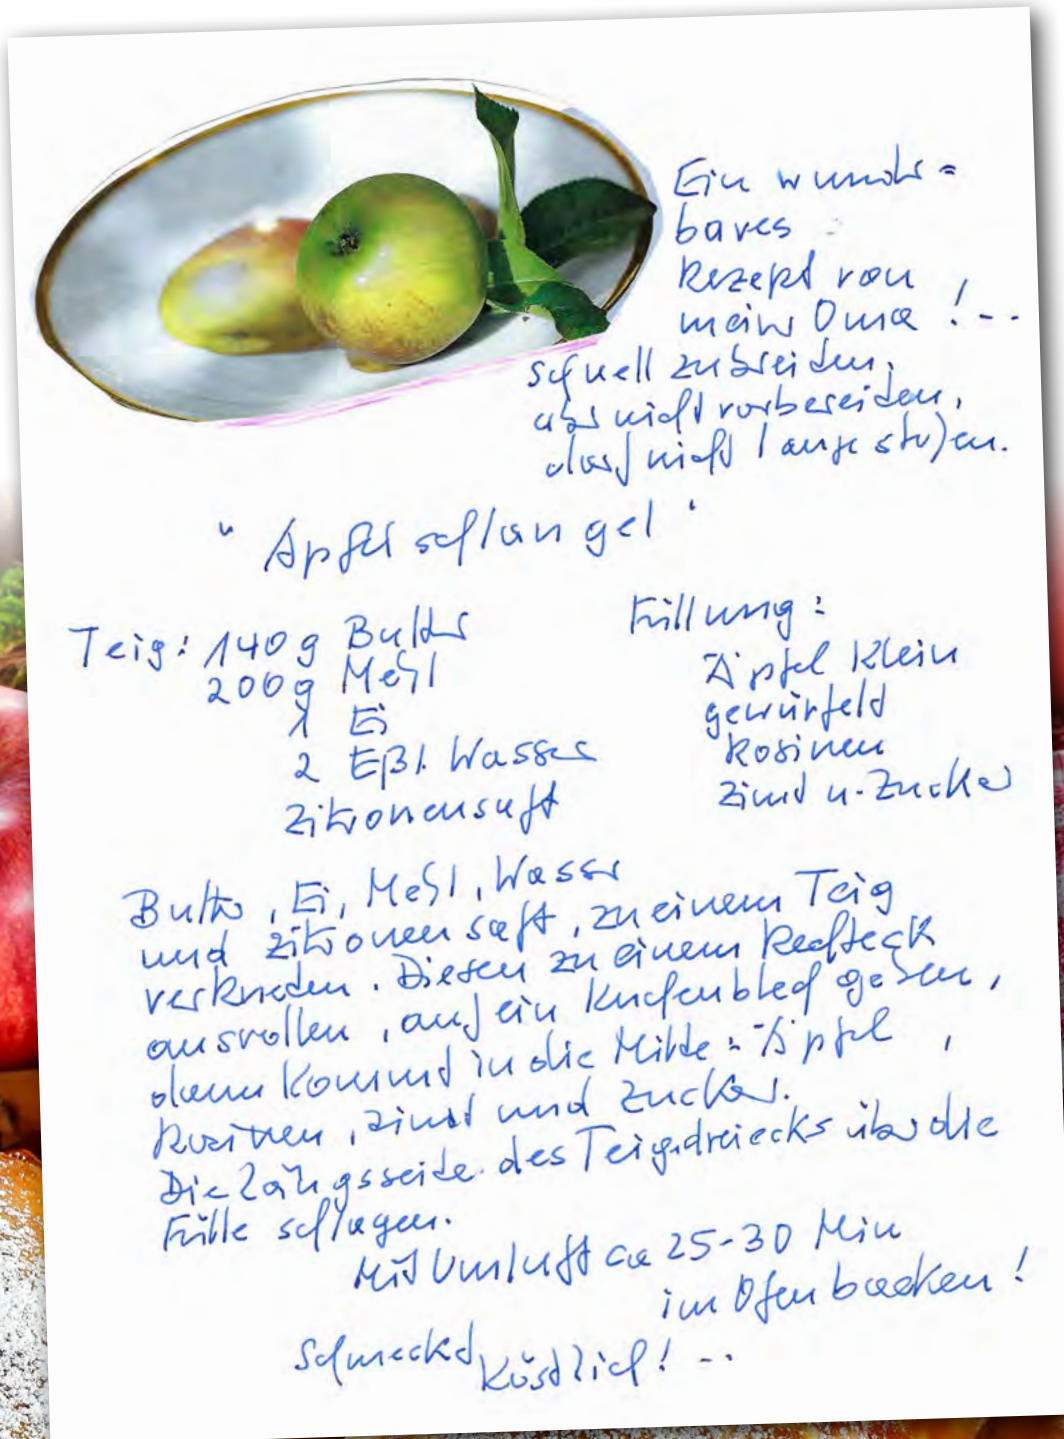 Ein wunder=
bares
Rezept von
meiner Oma !--
schnell zubreiten,
aber nicht vorbereiten,
darf nicht lange stehen.
"Apfelschlangel"
Teig: 140g Butter
200g Mehl
1 Ei
2 Eßl. Wasser
Zitronensaft
Füllung:
Äpfel klein
gewürfeld
Rosinen
Zimt u. Zucker
Butter, Ei, Mehl, Wasser
und Zitronensaft, zu einem Teig
verkneten. Diesen zu einem Rechteck
ausrollen, auf ein Kuchenblech geben,
dann kommt in die Mitte: Äpfel,
Rosinen, Zimt und Zucker.
Die Längsseite des Teigdreiecks über die
Fülle schlagen.
Mit Umluft ca 25-30 Min
im Ofen backen!
Schmeckt
köstlich! --